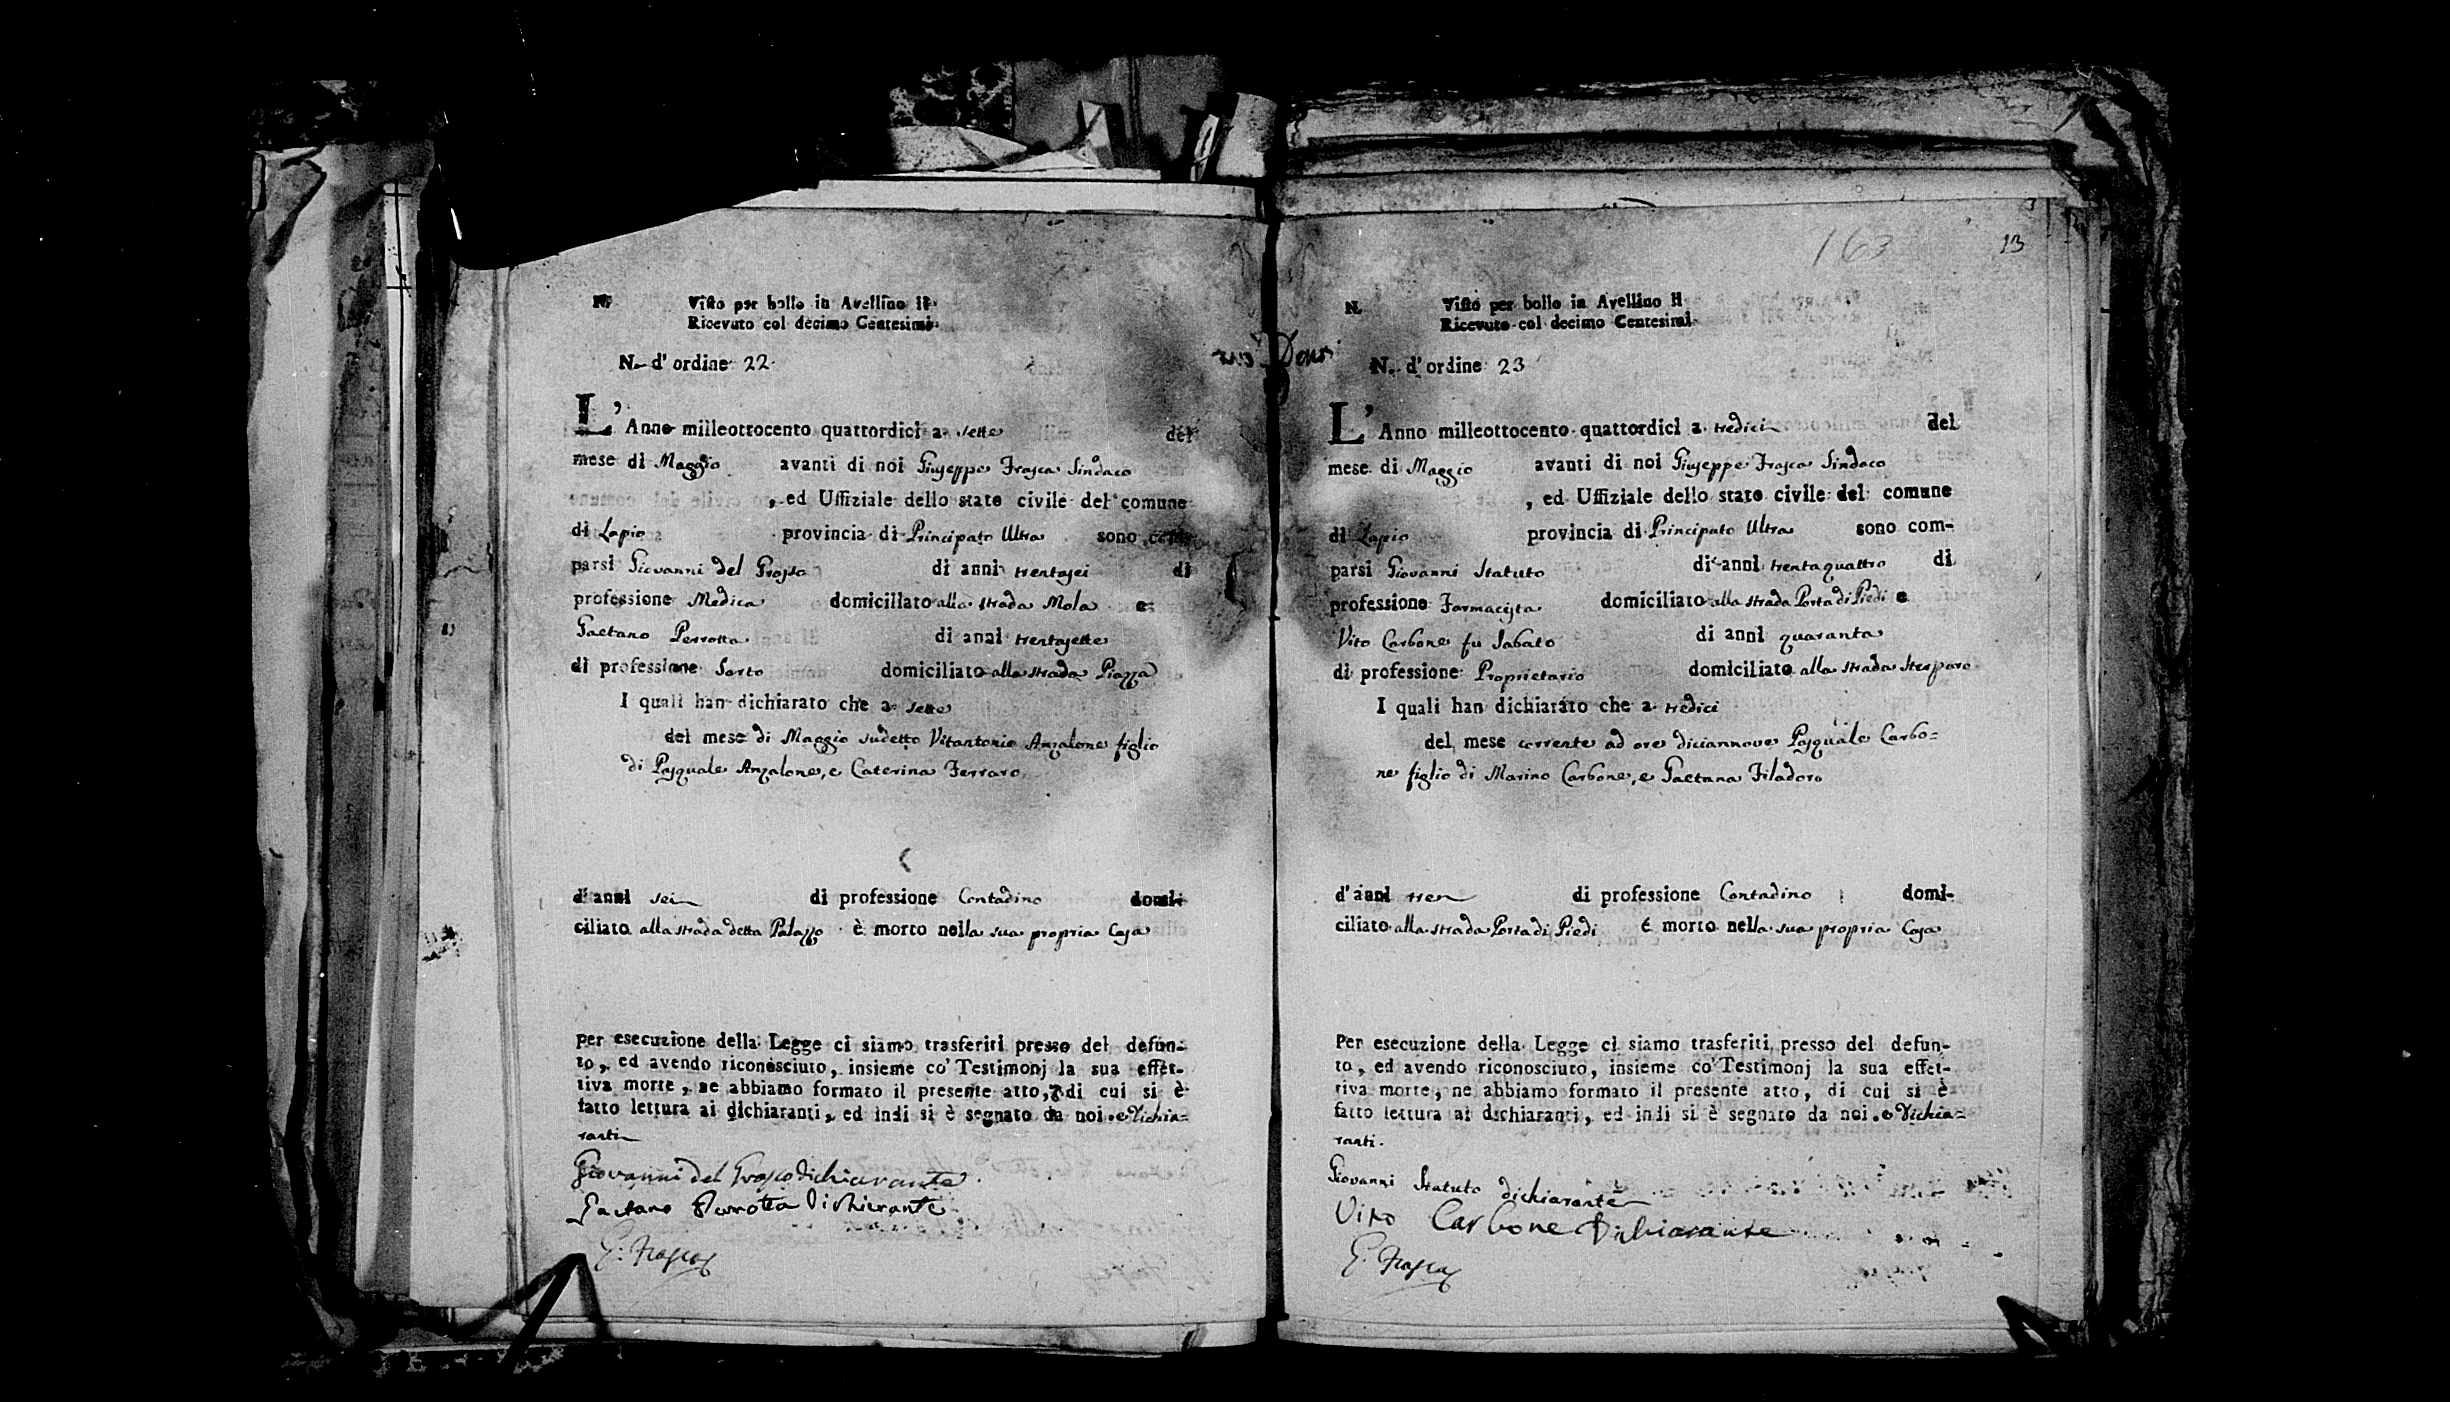 N. Visto per bollo in Avellino Il
Ricevuto col decimo Centesimi
N. d'ordine 22
L'Anno milleottocento quattordici a sette del
mese di Maggio avanti di noi Giuseppe Frasca Sindaco
, ed Uffiziale dello stato civile del comune
di Lapio provincia di Principato Ultra sono com-
parsi Giovanni del Grosso di anni trentasei di
professione Medico domiciliato alla strada Mola e
Gaetano Perrotta di anni trentasette
di professione Sarto domiciliato alla strada Piazza
I quali han dichiarato che a sette
del mese di Maggio sudetto Vitantonio Anzalone figlio
di Pasquale Anzalone, e Caterina Ferraro
d'anni sei di professione Contadino domi-
ciliato alla strada detta Palazzo è morto nella sua propria Casa
Per esecuzione della Legge ci siamo trasferiti presso del defun-
to, ed avendo riconosciuto, insieme co' Testimonj la sua effet-
tiva morte, ne abbiamo formato il presente atto, di cui si è
fatto lettura ai dichiaranti, ed indi si è segnato da noi, e Dichia=
ranti
Giovanni del Grosso dichiarante
Gaetano Perrotta Dichiarante
G. Frasca
163
13
N. Visto per bollo in Avellino Il
Ricevuto col decimo Centesimi
N. d'ordine 23
L'Anno milleottocento quattordici a tredici del
mese di Maggio avanti di noi Giuseppe Frasca Sindaco
, ed Uffiziale dello stato civile del comune
di Lapio provincia di Principato Ultra sono com-
parsi Giovanni Statuto di anni trentaquattro di
professione Farmacista domiciliato alla strada Porta di Piedi e
Vito Carbone fu Sabato di anni quaranta
di professione Proprietario domiciliato alla strada
I quali han dichiarato che a tredici
del mese corrente ad ore diciannove Pasquale Carbo=
ne figlio di Marino Carbone, e Gaetana Filadoro
d'anni tre di professione Contadino domi-
ciliato alla strada Porta di Piedi è morto nella sua propria Casa
Per esecuzione della Legge ci siamo trasferiti presso del defun-
to, ed avendo riconosciuto, insieme co' Testimonj la sua effet-
tiva morte, ne abbiamo formato il presente atto, di cui si è
fatto lettura ai dschiaranti, ed indi si è segnato da noi, e Dichia=
ranti.
Giovanni Statuto dichiarante
Vito Carbone Dichiarante
G. Frasca